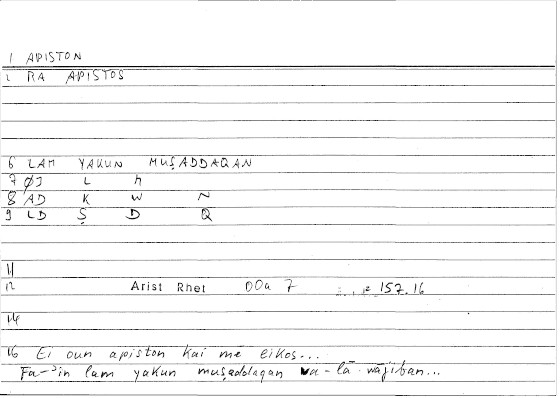 1 APISTON
2 RA APISTOS
6 LAM YAKUN MUṢADDAQAN
7 ØJ L h
8 AD K W N
9 LD Ṣ D Q
11
12 Arist Rhet 00a 7 157.16
14
16 Ei oun apiston kai mē eikos...
Fa-ʾin lam yakun muṣaddaqan wa-lā wājiban...